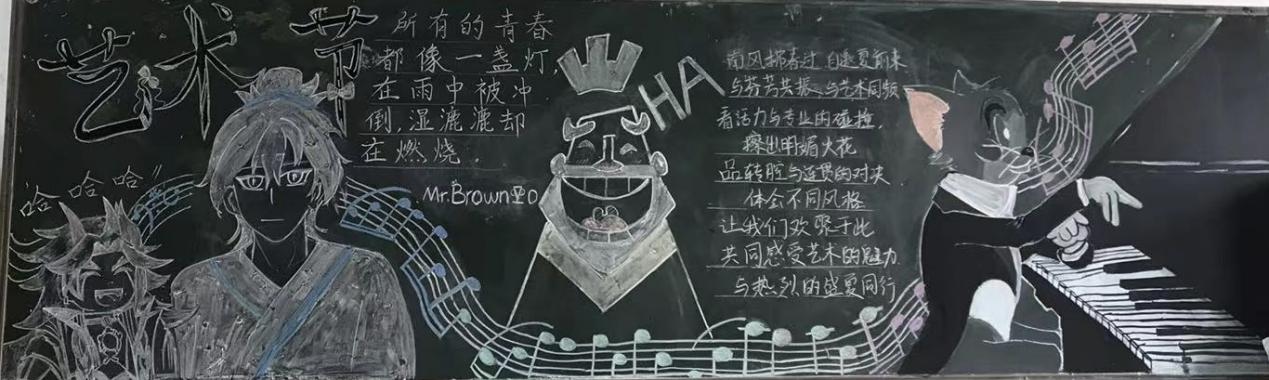 艺术节
所有的青春
都像一盏灯,
在雨中被冲
倒,湿漉漉却
在燃烧.
"哈哈哈"
Mr.Brown
HA
南风拥春过 自逐夏前来
与芬芳共振、与艺术同频
看活力与专业的碰撞,
擦出明媚火花
品转腔与连贯的对决
体会不同风格
让我们欢聚于此
共同感受艺术的魅力
与热烈的盛夏同行